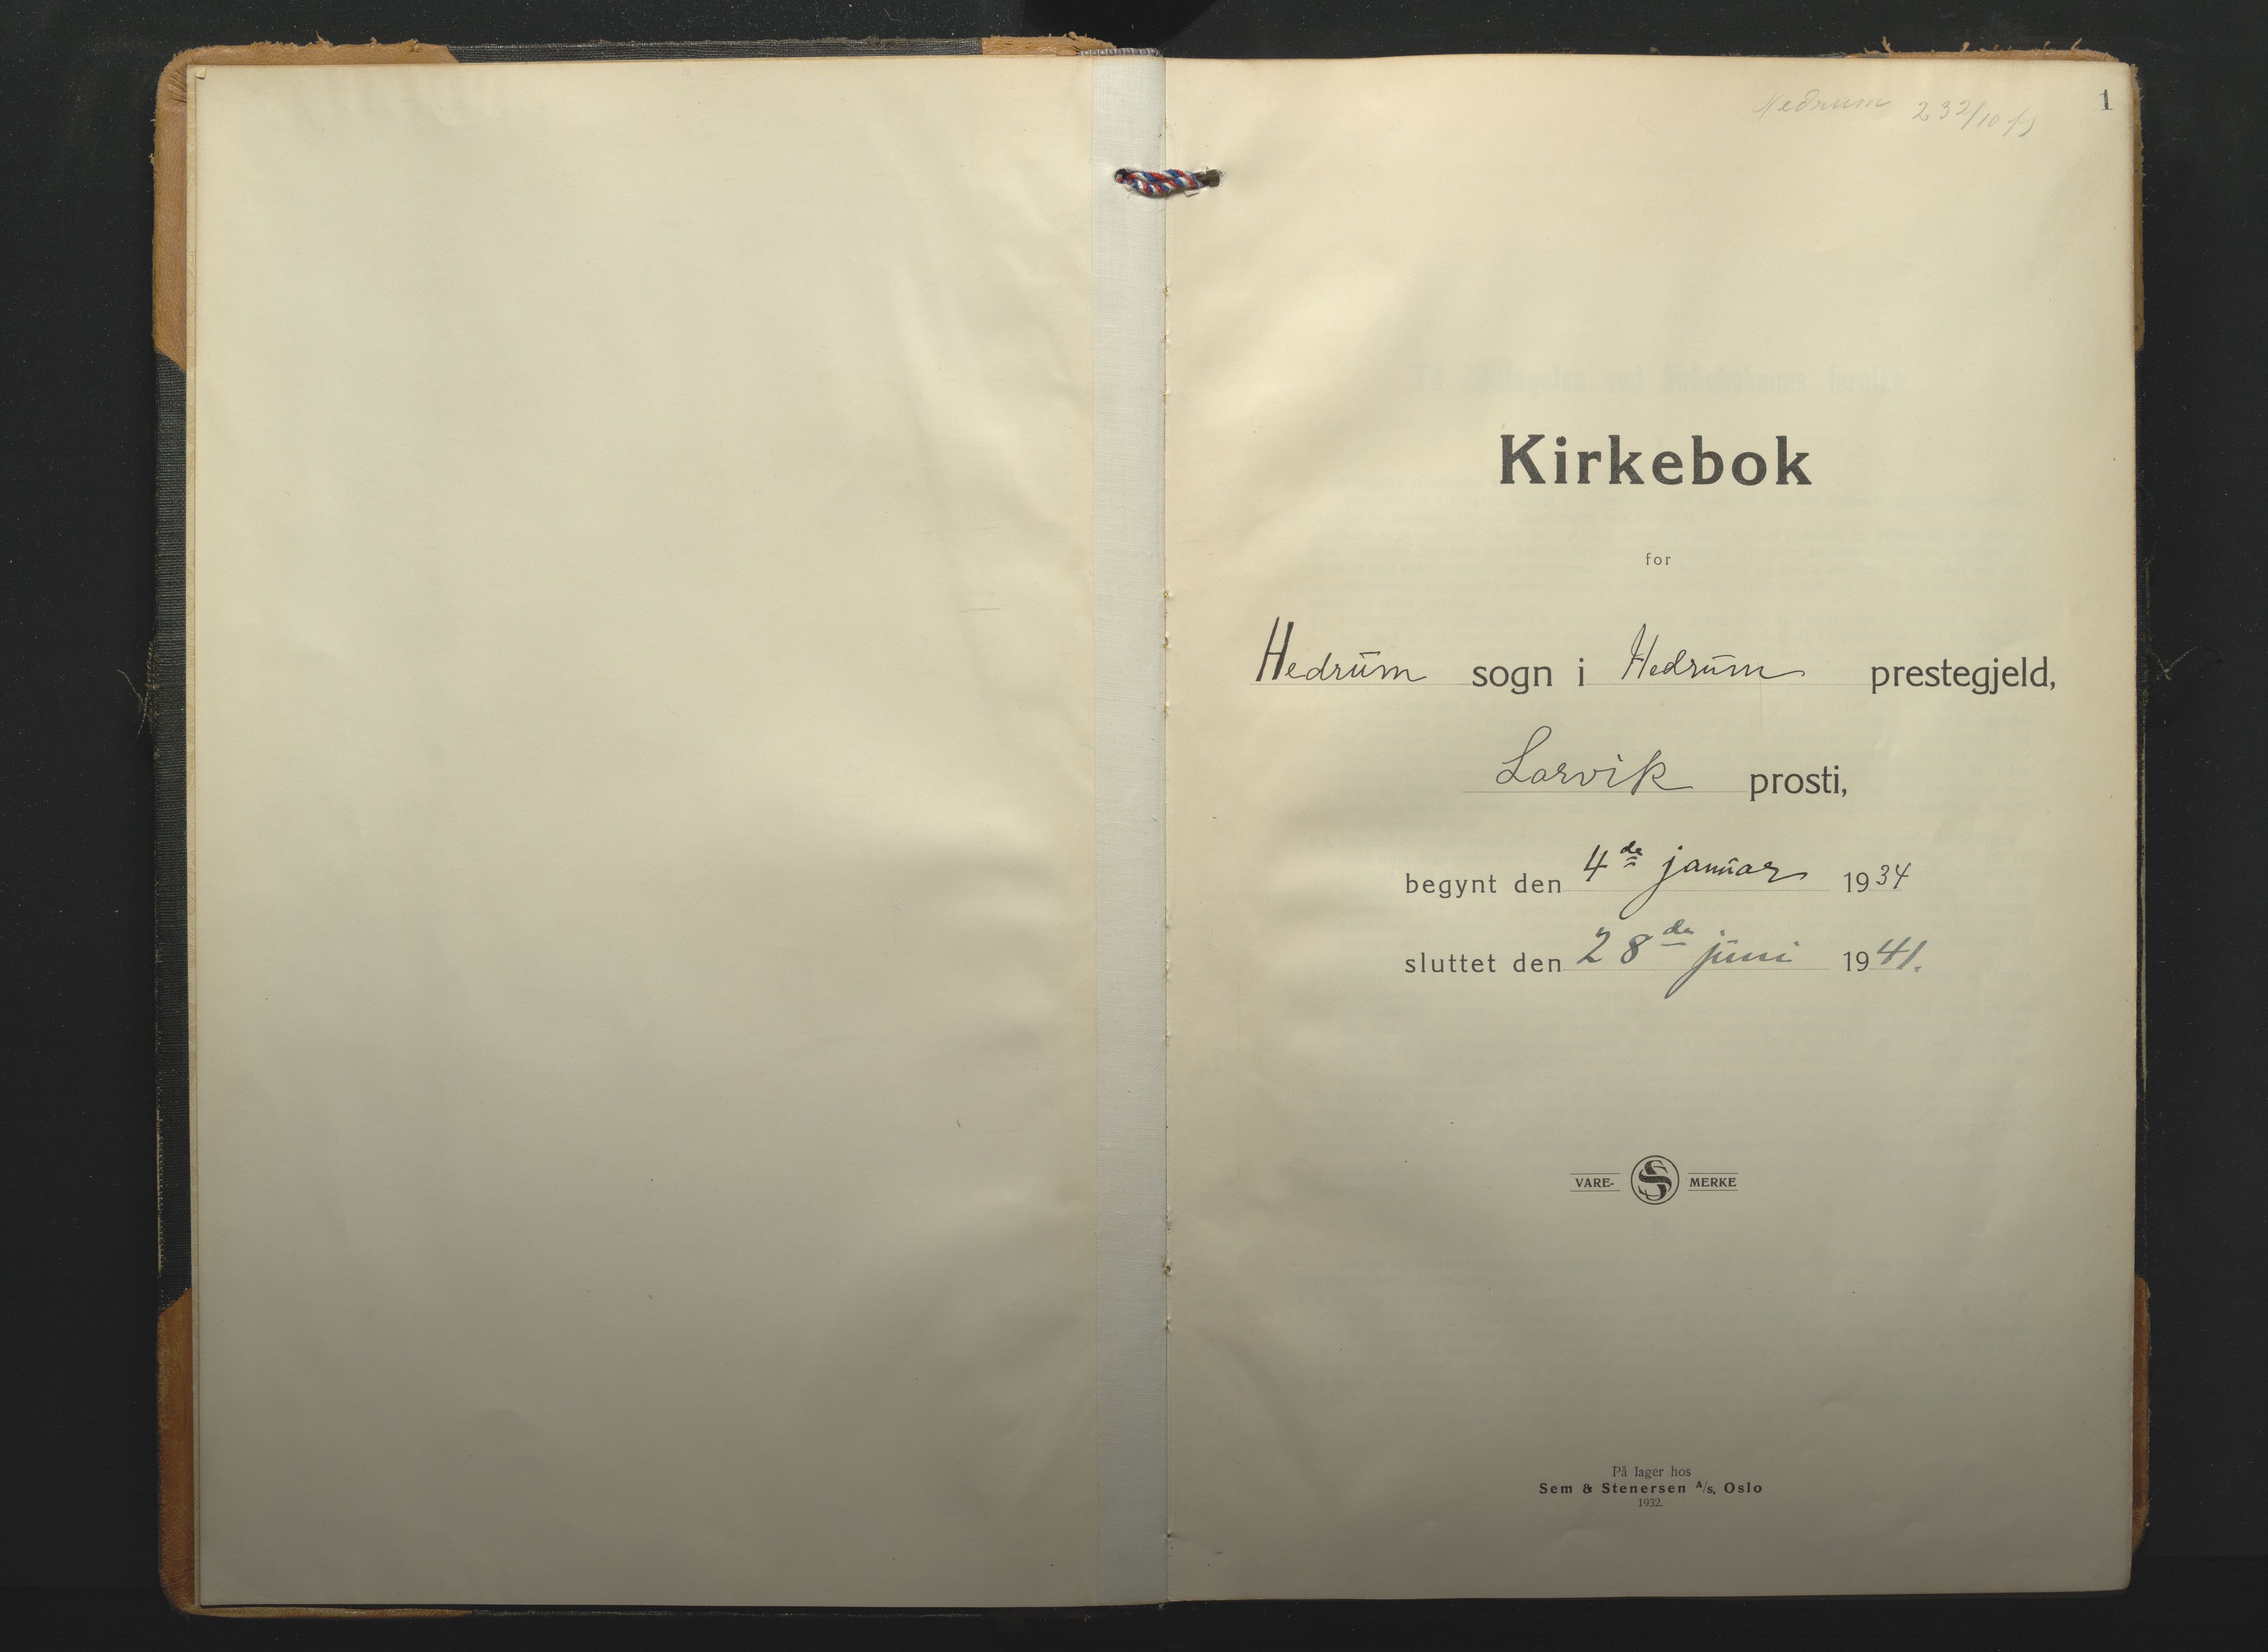 Hedrum 232/10
1
Kirkebok
for
Hedrum sogn i Hedrum prestegjeld,
Larvik prosti,
begynt den 4de januar 1934
sluttet den 28de juni 1941.
VARE- S MERKE
På lager hos
Sem & Stenersen A/s, Oslo
1932.